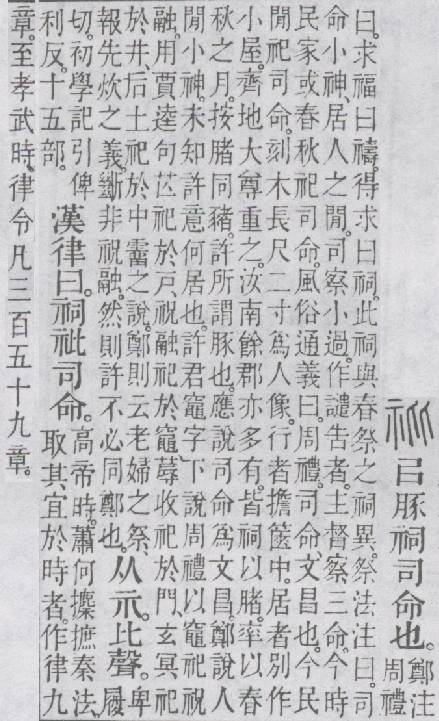 㠯豚祠司命也。鄭注
周禮
曰。求福曰禱。得求曰祠。此祠與春祭之祠異。祭法注曰。司
命小神。居人之閒。司察小過。作譴告者。主督察三命。今時
民家或春秋祀司命。風俗通義曰。周禮司命。文昌也。今民
閒祀司命。刻木長尺二寸爲人像。行者擔篋中。居者別作
小屋。齊地大尊重之。汝南餘郡亦多有。皆祠以睹。率以春
秋之月。按睹同豬。許所謂豚也。應說司命爲文昌。鄭說人
閒小神。未知許意何居也。許君竈字下說周禮以竈祀祝
融。用賈逵句芒祀於戶、祝融祀於竈、蓐收祀於門、玄冥祀
於井、后土祀於中霤之說。鄭則云老婦之祭、
報先炊之義。斷非祝融。然則許不必同鄭也。从示。比聲。卑履
切。初學記引俾
利反。十五部。漢律曰。祠䃾司命。高帝時。蕭何攗摭秦法。
取其宜於時者。作律九
章。至孝武時。律令凡三百五十九章。